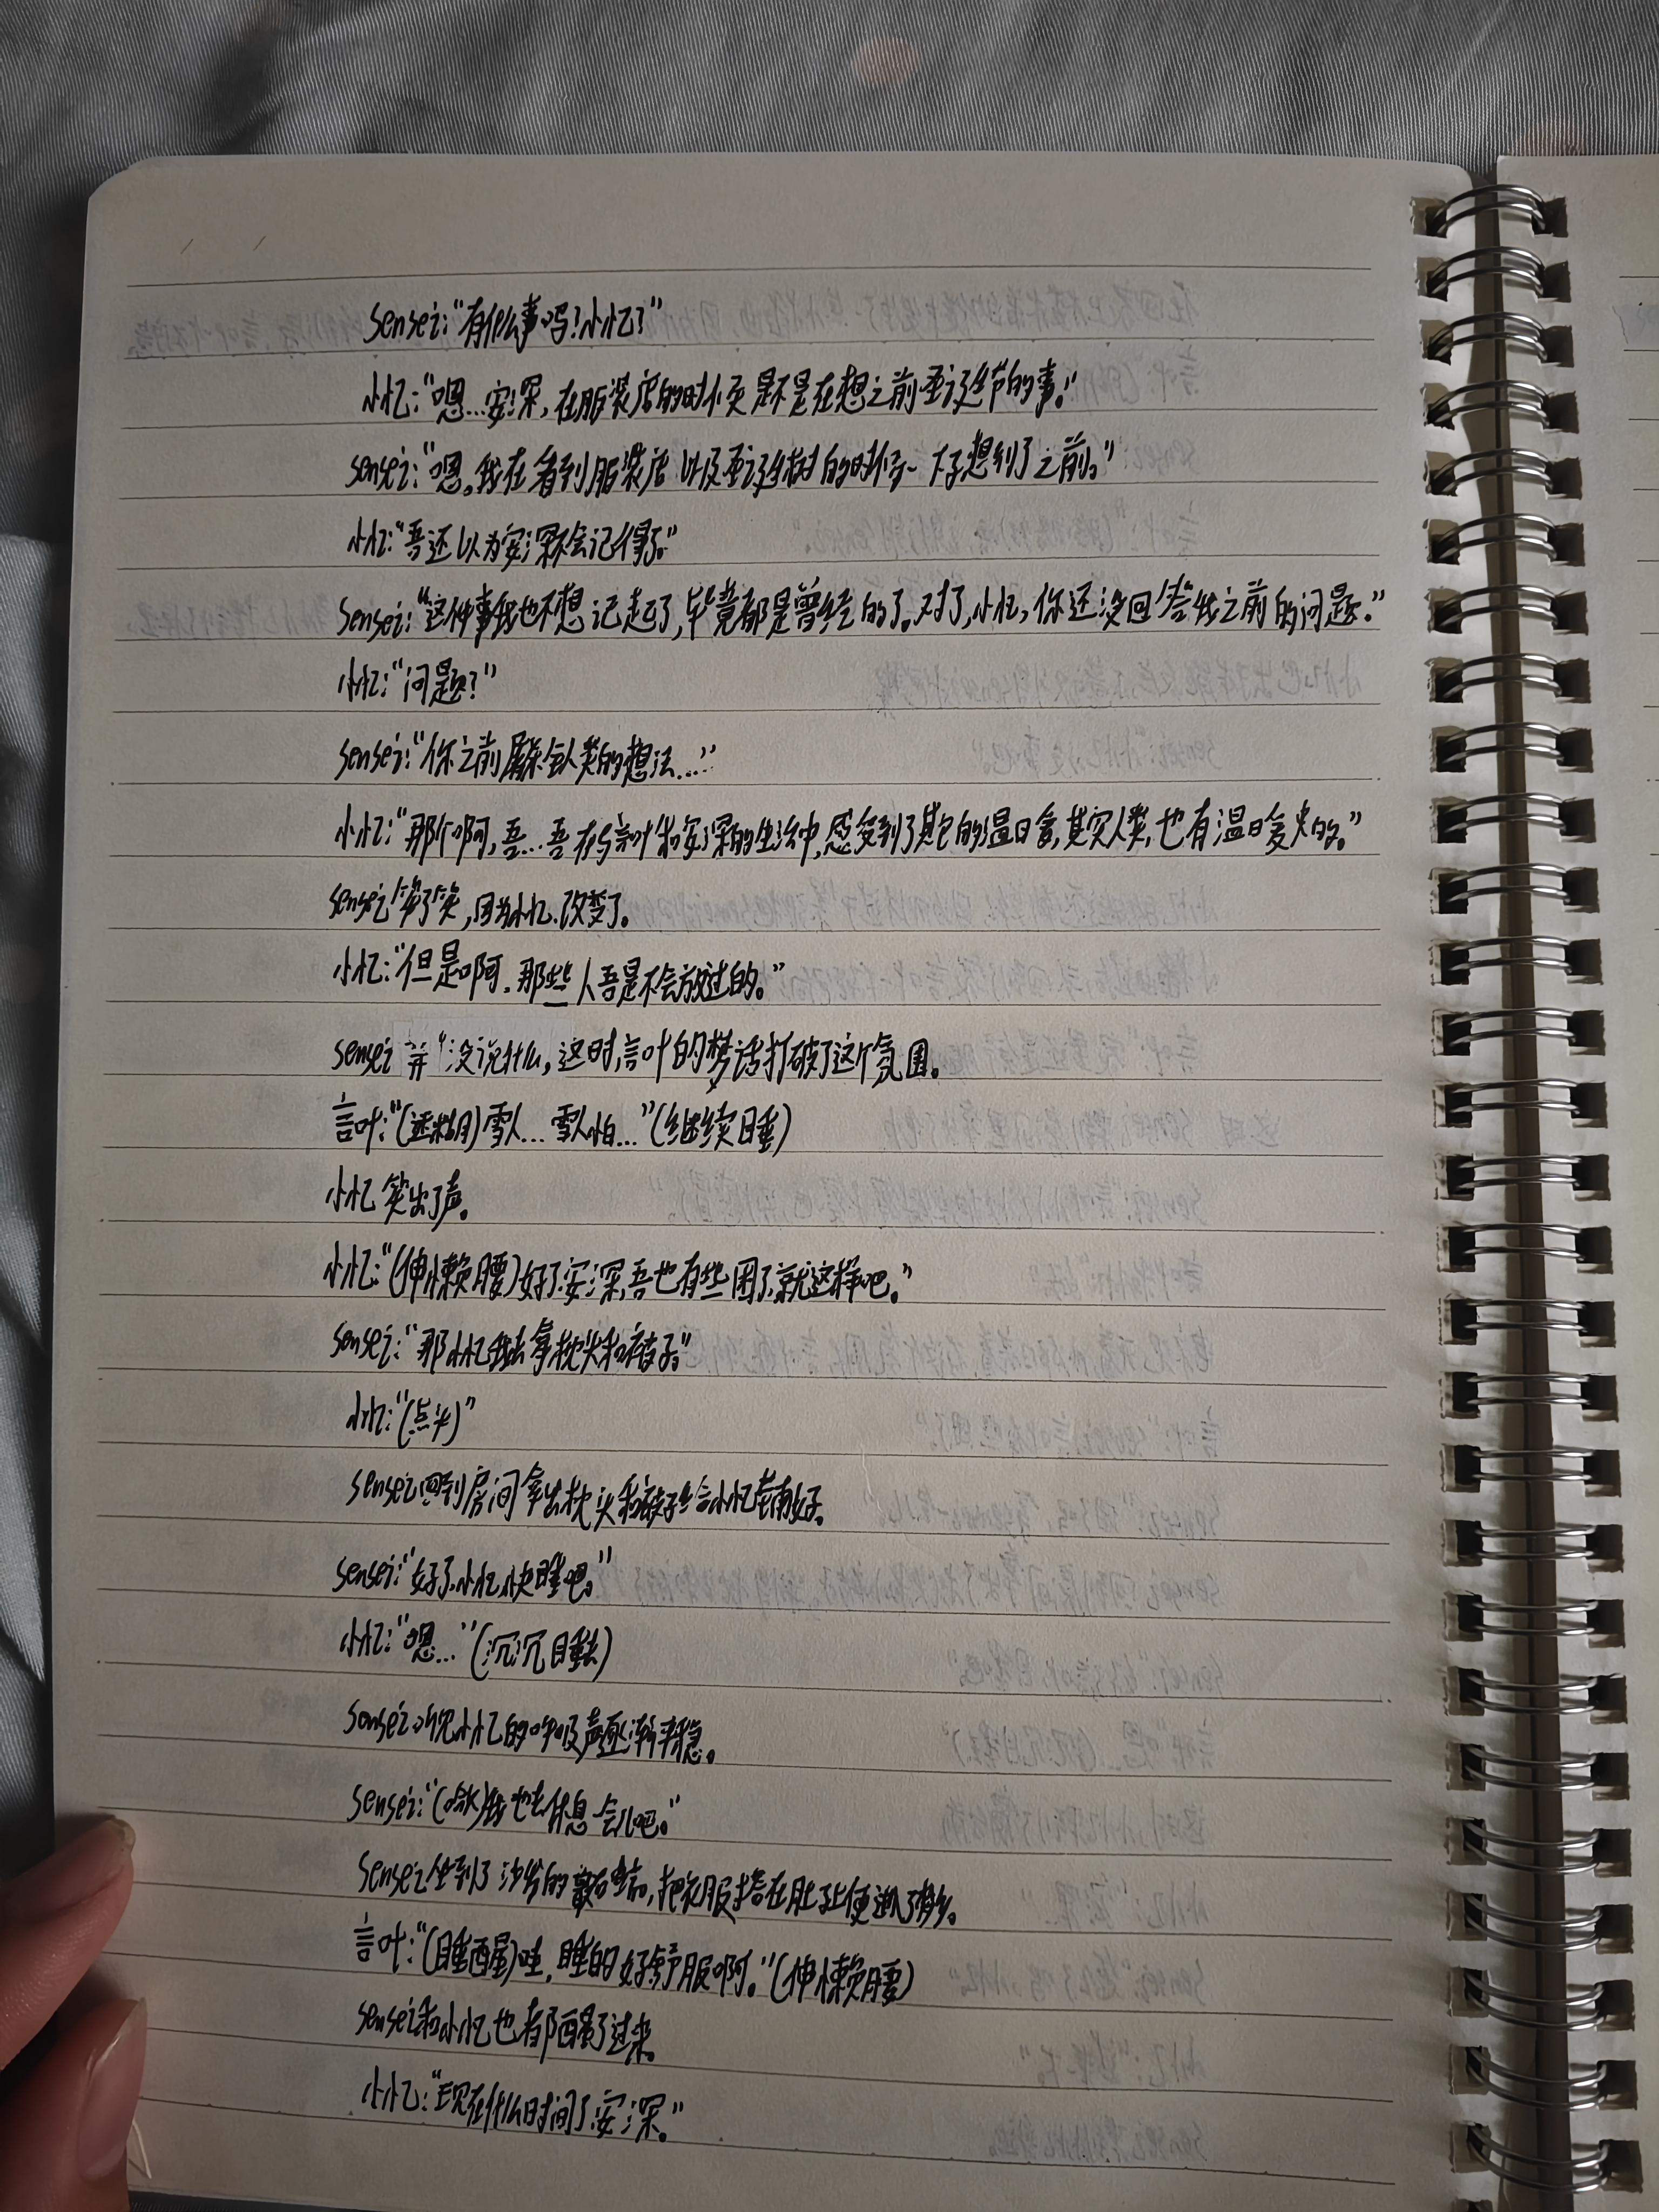 sensei:“有什么事吗?小忆?”
小忆:“嗯...安深,在服装店的时候是不是在想之前圣诞节的事。”
sensei:“嗯。我在看到服装店以及圣诞树的时候一下子想到了之前。”
小忆:“吾还以为安深不会记得了。”
sensei:“这件事我也不想记起了,毕竟都是曾经的了。对了,小忆,你还没回答我之前的问题。”
小忆:“问题?”
sensei:“你之前屠杀全人类的想法...”
小忆:“那个啊,吾...吾在与言叶和安深的生活中,感受到了其它的温暖,其实人类,也有温暖的。”
sensei笑了笑,因为小忆改变了。
小忆:“但是啊,那些人吾是不会放过的。”
sensei并没说什么,这时,言叶的梦话打破了这个氛围。
言叶:“(迷糊)雪人...雪人怕...”(继续睡)
小忆笑出了声。
小忆:“(伸懒腰)好了安深,吾也有些困了,就这样吧。”
sensei:“那小忆我去拿枕头和被子。”
小忆:“(点头)”
sensei回到房间拿出枕头和被子给小忆铺好。
sensei:“好了小忆,快睡吧。”
小忆:“嗯...”(沉沉睡去)
sensei听见小忆的呼吸声逐渐平稳。
sensei:“我也去休息会儿吧。”
sensei坐到了沙发的最右端,把衣服搭在肚子上便进入了梦乡。
言叶:“(睡醒)哇,睡的好舒服啊。”(伸懒腰)
sensei和小忆也都醒了过来。
小忆:“现在什么时间了,安深。”